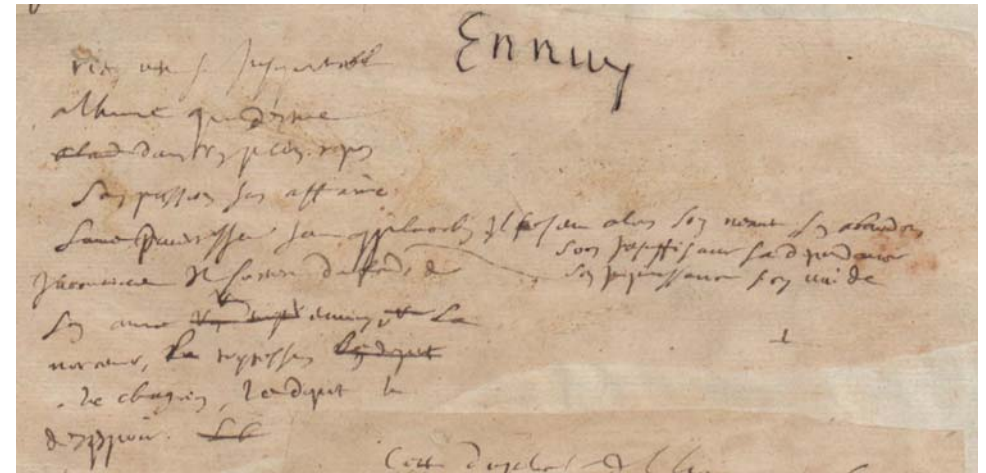 Ennuy
rien n si insuportable
a lhome que destre
dans un plein repos
sans passion sans affaire
sans divertissem sans application Il sent alors son neant son abandon
son insuffisance sa dependance
son impuissance son vide
Incontinent Il sortira du fonds de
son ame lennuy, la
noirceur, la tristesse
le chagrin, le depit le
desespoir.